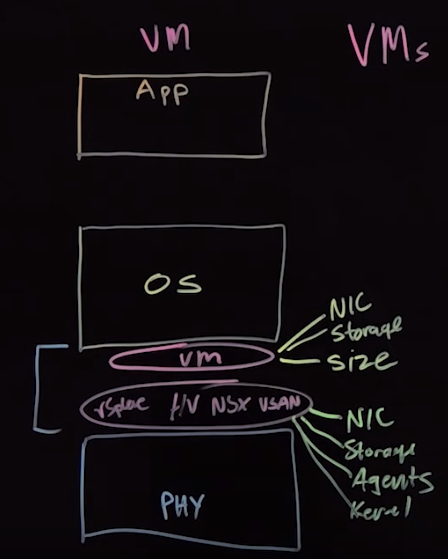 VM
VMs
APP
OS
NIC
Storage
Size
vm
H/V NSX VSAN
NIC
Storage
Agents
Kernel
PHY